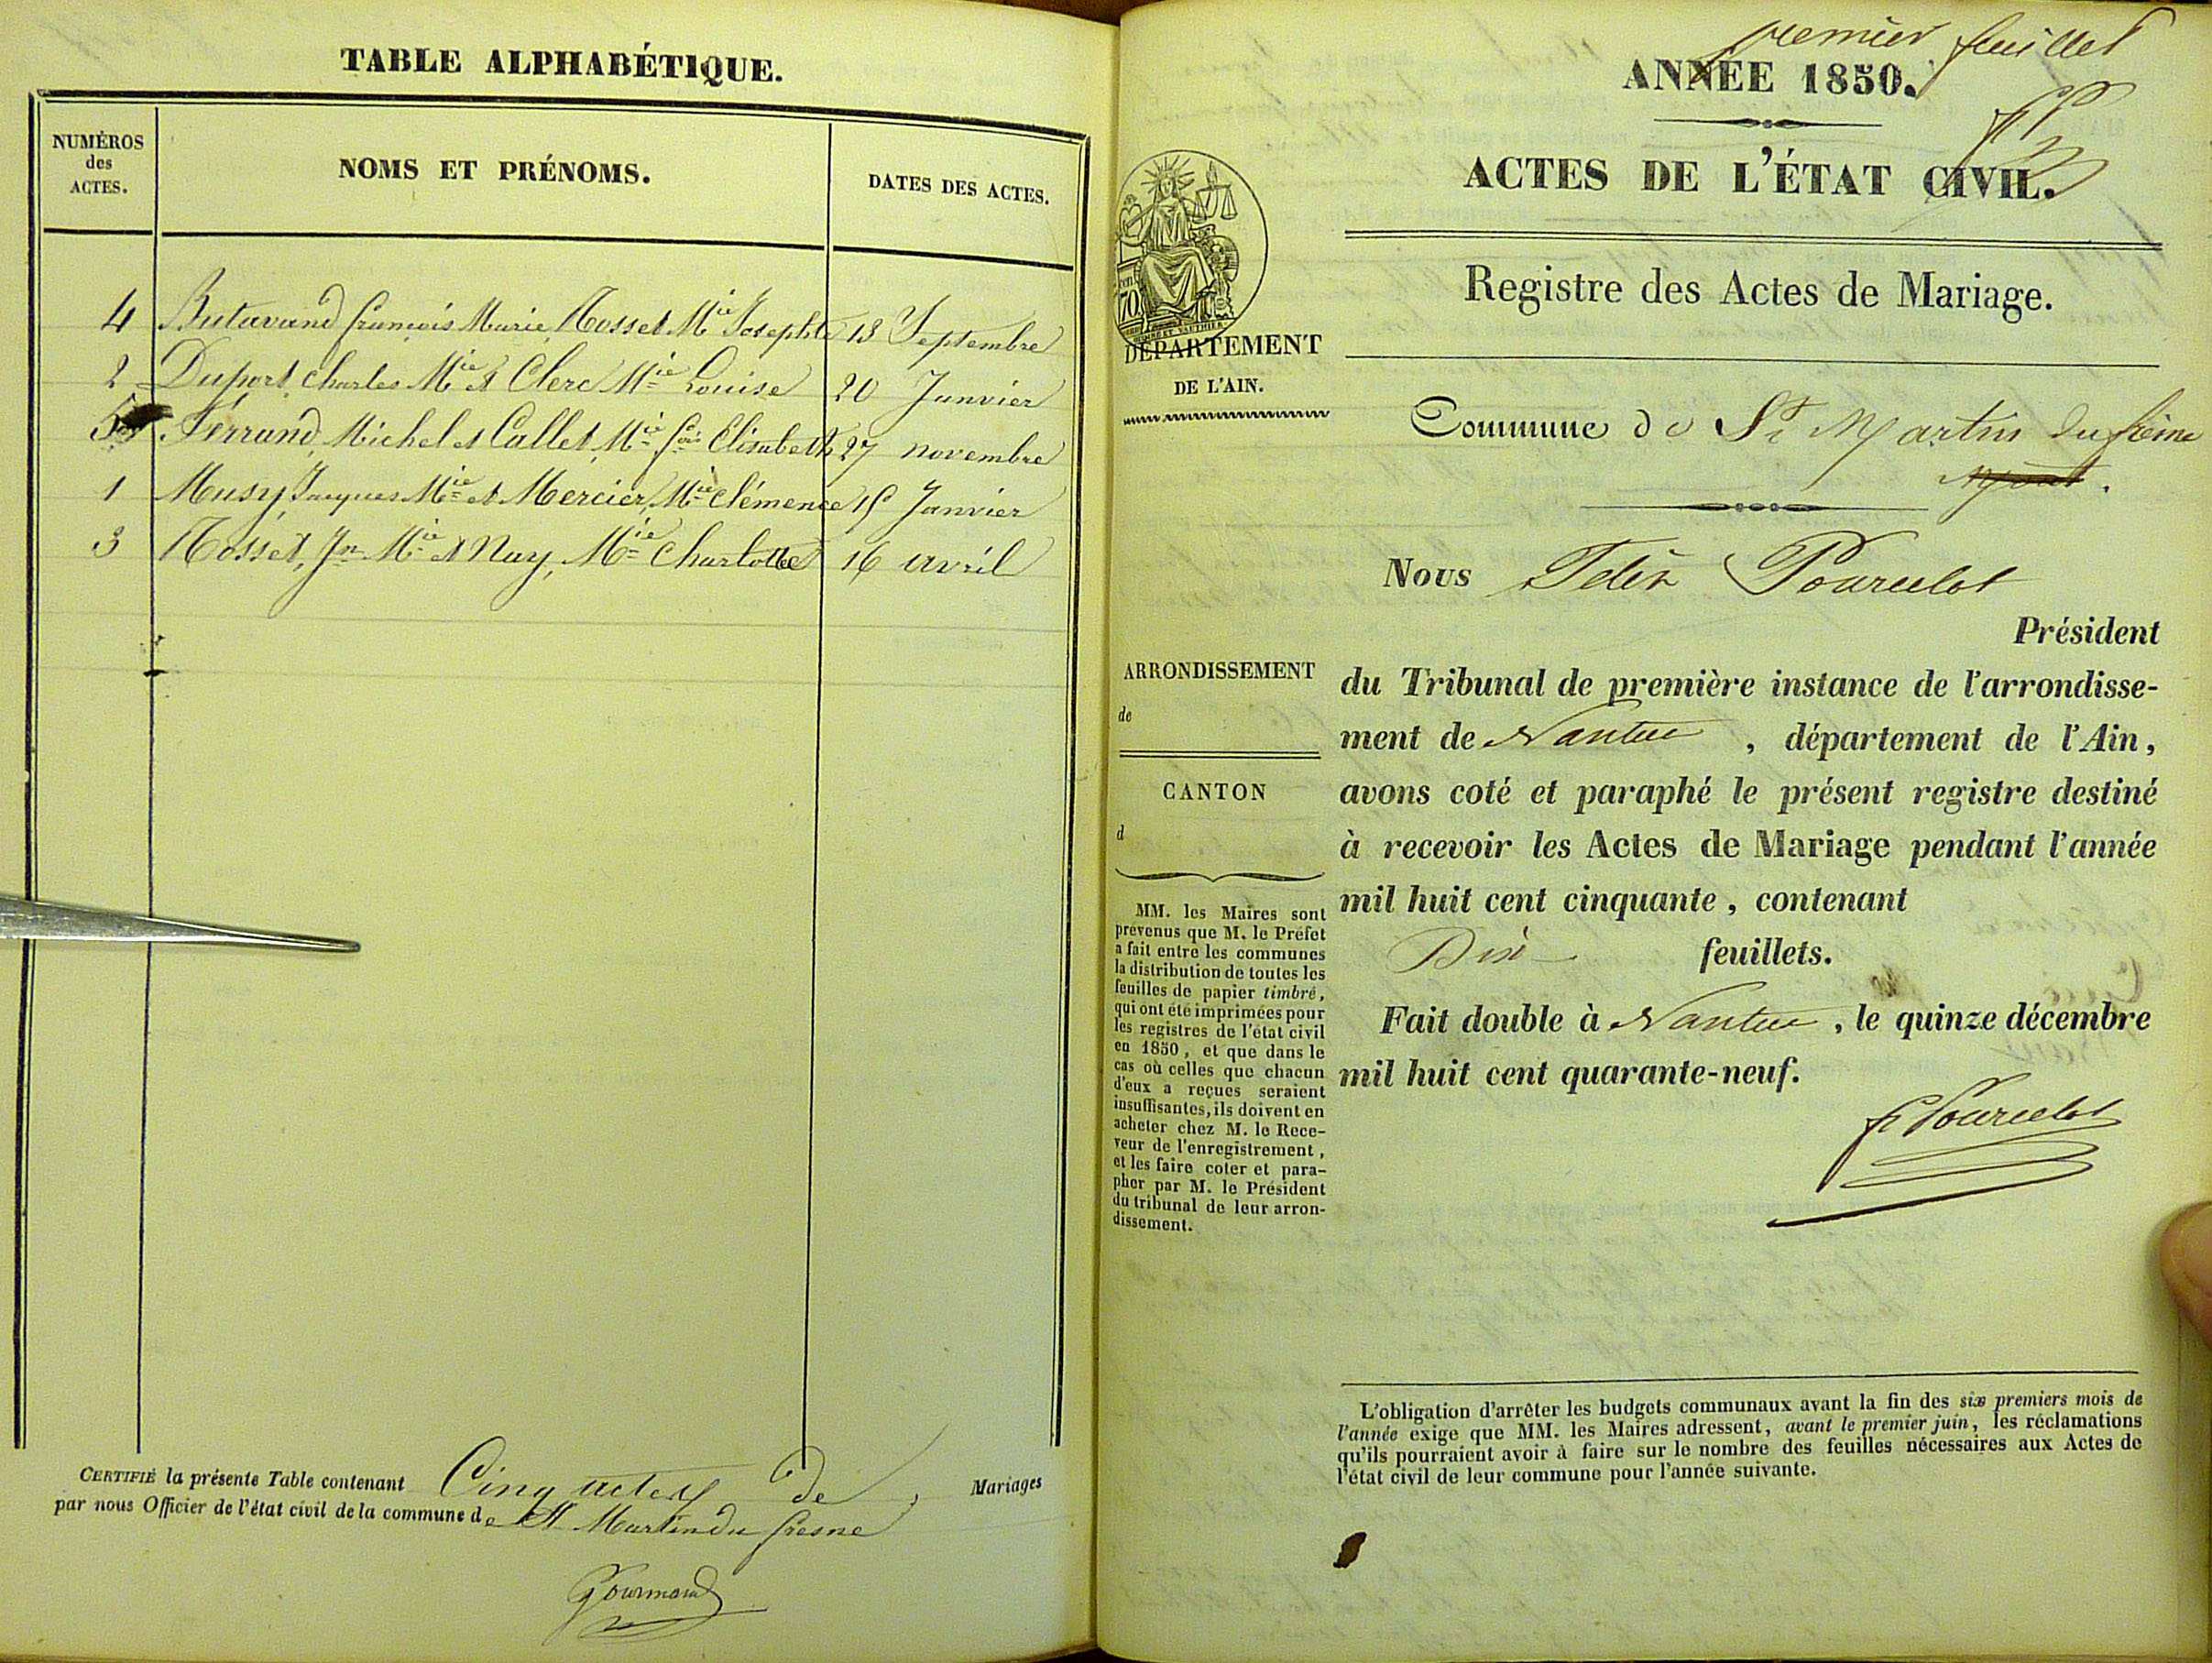 TABLE ALPHABÉTIQUE.
NUMÉROS
des
ACTES.
NOMS ET PRÉNOMS.
DATES DES ACTES.
4 Butavand françois Marie, Rosset Mie Josephte 18 Septembre
2 Duport, Charles Mie et Clerc Mie Louise 20 Janvier
5 Ferrand, Michel et Callet, Mie fçoise Elisabeth 27 novembre
1 Musy, Jacques Mie et Mercier, Mie Clémence 15 Janvier
3 Rosset, Jn Mie et Nay, Mie Charlotte 16 avril
CERTIFIÉ la présente Table contenant Cinq actes de Mariages
par nous Officier de l'état civil de la commune de St Martin du fresne
Gourmand
premier feuillet
ANNÉE 1850.
ACTES DE L'ÉTAT CIVIL.
Registre des Actes de Mariage.
70
DÉPARTEMENT
DE L'AIN.
Commune de St Martin du frêne
Nous Felix Pourcelot
Président
ARRONDISSEMENT
de
CANTON
d
du Tribunal de première instance de l'arrondisse-
ment de Nantua , département de l'Ain,
avons coté et paraphé le présent registre destiné
à recevoir les Actes de Mariage pendant l'année
mil huit cent cinquante, contenant
Dix feuillets.
Fait double à Nantua, le quinze décembre
mil huit cent quarante-neuf.
F Pourcelot
MM. les Maires sont
prévenus que M. le Préfet
a fait entre les communes
la distribution de toutes les
feuilles de papier timbré,
qui ont été imprimées pour
les registres de l'état civil
en 1850, et que dans le
cas où celles que chacun
d'eux a reçues seraient
insuffisantes, ils doivent en
acheter chez M. le Rece-
veur de l'enregistrement,
et les faire coter et para-
pher par M. le Président
du tribunal de leur arron-
dissement.
L'obligation d'arrêter les budgets communaux avant la fin des six premiers mois de
l'année exige que MM. les Maires adressent, avant le premier juin, les réclamations
qu'ils pourraient avoir à faire sur le nombre des feuilles nécessaires aux Actes de
l'état civil de leur commune pour l'année suivante.